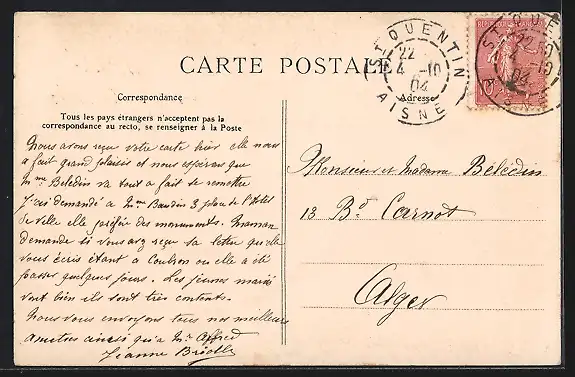 CARTE POSTALE
Correspondance
Adresse
Tous les pays étrangers n'acceptent pas la
correspondance au recto, se renseigner à la Poste
Nous avons reçu votre carte hier elle nous
a fait grand plaisir et nous espérons que
Mme Bélédin va tout à fait se remettre
J'ai demandé à Mme Baudin 3 place de l'Hôtel
de Ville elle préfère des monuments. Maman
demande si vous avez reçu la lettre qu'elle
vous écris étant à où elle a été
passer quelques jours. Les jeunes mariés
vont bien ils sont très contents.
Nous vous envoyons tous nos meilleurs
amitiés ainsi qu'à Mr Alfred
Jeanne
Monsieur et Madame Bélédin
13 Bd Carnot
Alger
ST QUENTIN
22
4 -10
04
AISNE